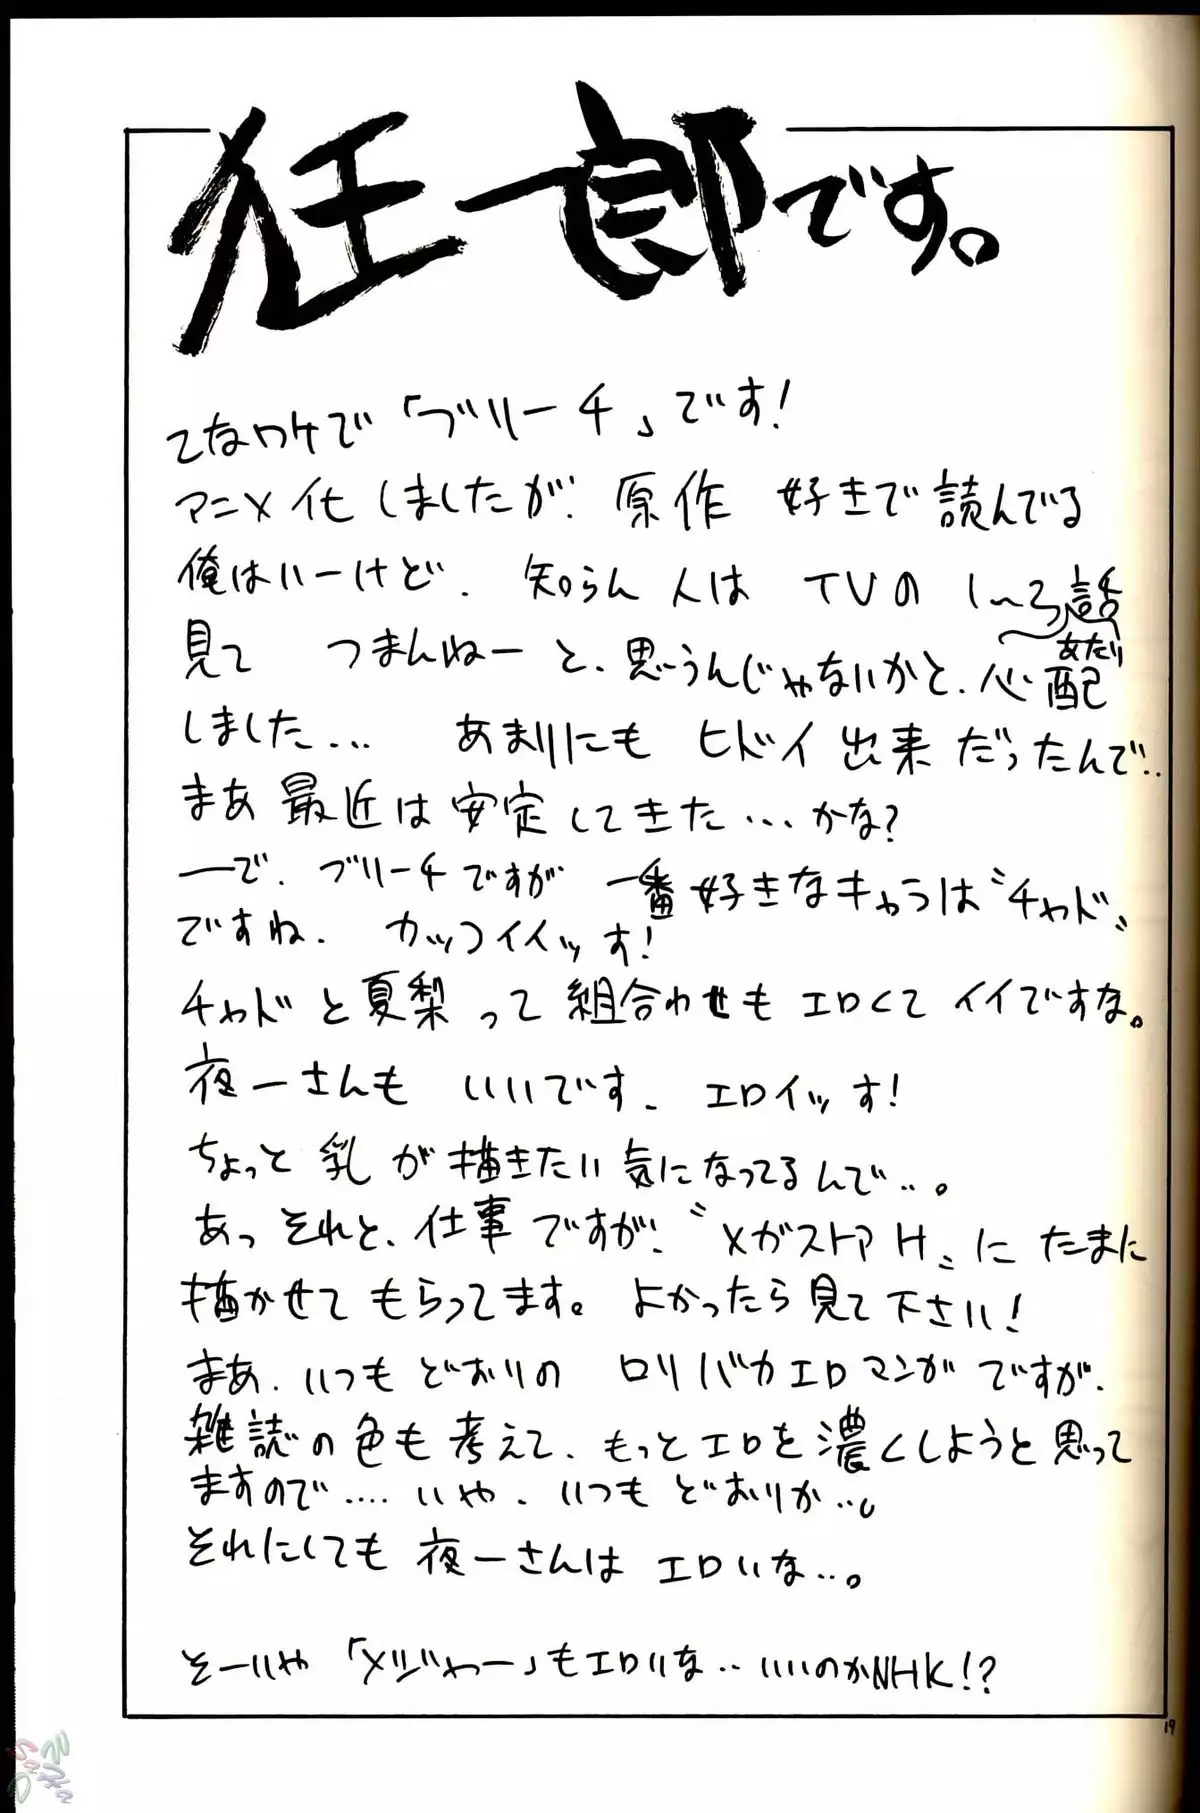 狂一郎です。
てなワケで「ブリーチ」です!
アニメ化しましたが、原作 好きで読んでる
俺はいーけど、知らん人は TVの 1〜3話あたり
見て つまんねーと、思うんじゃないかと、心配
しました... あまりにも ヒドイ出来だったんで..
まあ最近は安定してきた...かな?
一で、ブリーチですが 一番好きなキャラは〝チャド〟
ですね、カッコイイッす!
チャドと夏梨って組合わせもエロくてイイですな。
夜一さんも いいです、エロイッす!
ちょっと乳が描きたい気になってるんで..。
あっそれと、仕事ですが、〝メガストアH〟にたまに
描かせてもらってます。よかったら見て下さい!
まあ、いつもどおりの ロリバカエロマンガですが、
雑誌の色も考えて、もっとエロを濃くしようと思って
ますので....いや、いつもどおりか..。
それにしても夜一さんは エロいな..。
そーいや「メジャー」もエロいな..いいのかNHK!?
19